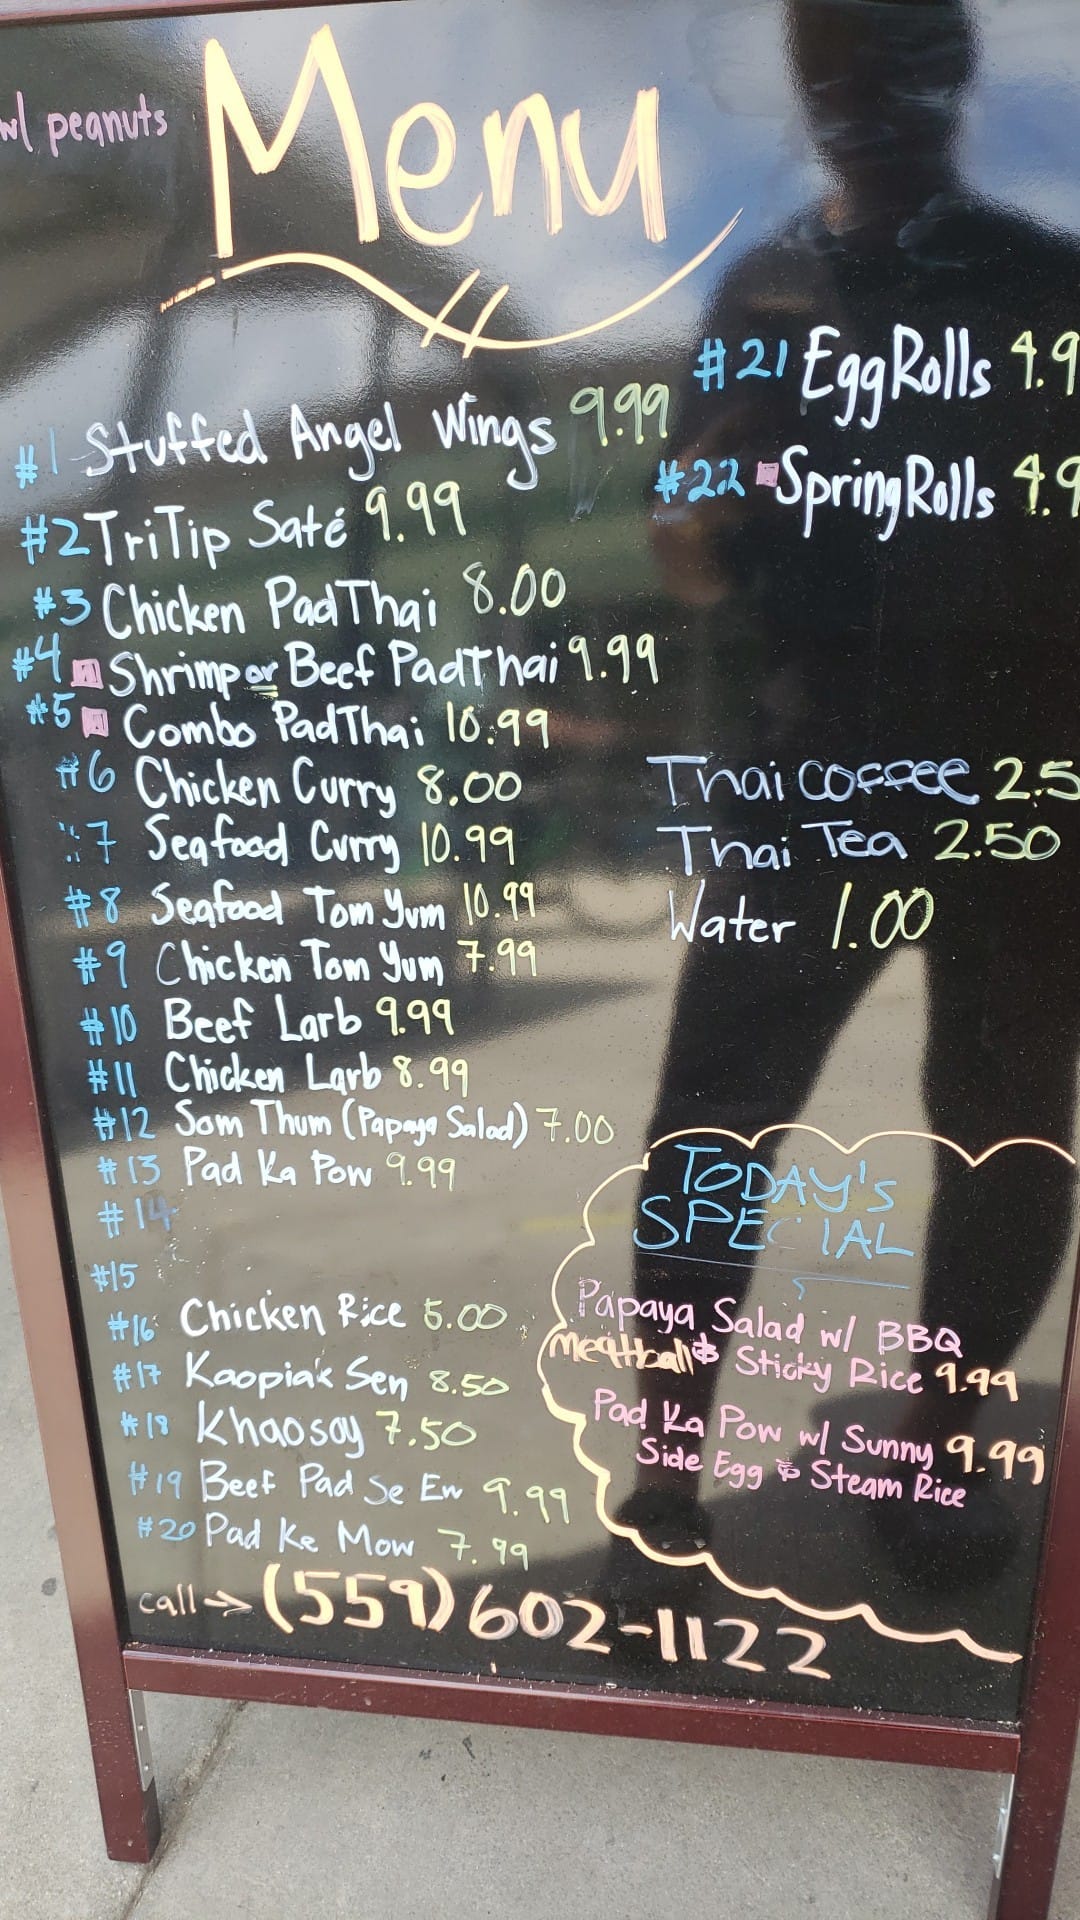 w/ peanuts
Menu
#1 Stuffed Angel Wings 9.99
#2 TriTip Saté 9.99
#3 Chicken PadThai 8.00
#4 Shrimp or Beef PadThai 9.99
#5 Combo PadThai 10.99
#6 Chicken Curry 8.00
#7 Seafood Curry 10.99
#8 Seafood Tom Yum 10.99
#9 Chicken Tom Yum 7.99
#10 Beef Larb 9.99
#11 Chicken Larb 8.99
#12 Som Thum (Papaya Salad) 7.00
#13 Pad Ka Pow 9.99
#14
#15
#16 Chicken Rice 5.00
#17 Kaopiak Sen 8.50
#18 Khaosoy 7.50
#19 Beef Pad Se Ew 9.99
#20 Pad Ke Mow 7.99
call → (559) 602-1122
#21 EggRolls 4.9
#22 SpringRolls 4.9
Thai coffee 2.5
Thai Tea 2.50
Water 1.00
TODAY'S
SPECIAL
Papaya Salad w/ BBQ
Meatball & Sticky Rice 9.99
Pad Ka Pow w/ Sunny 9.99
Side Egg & Steam Rice